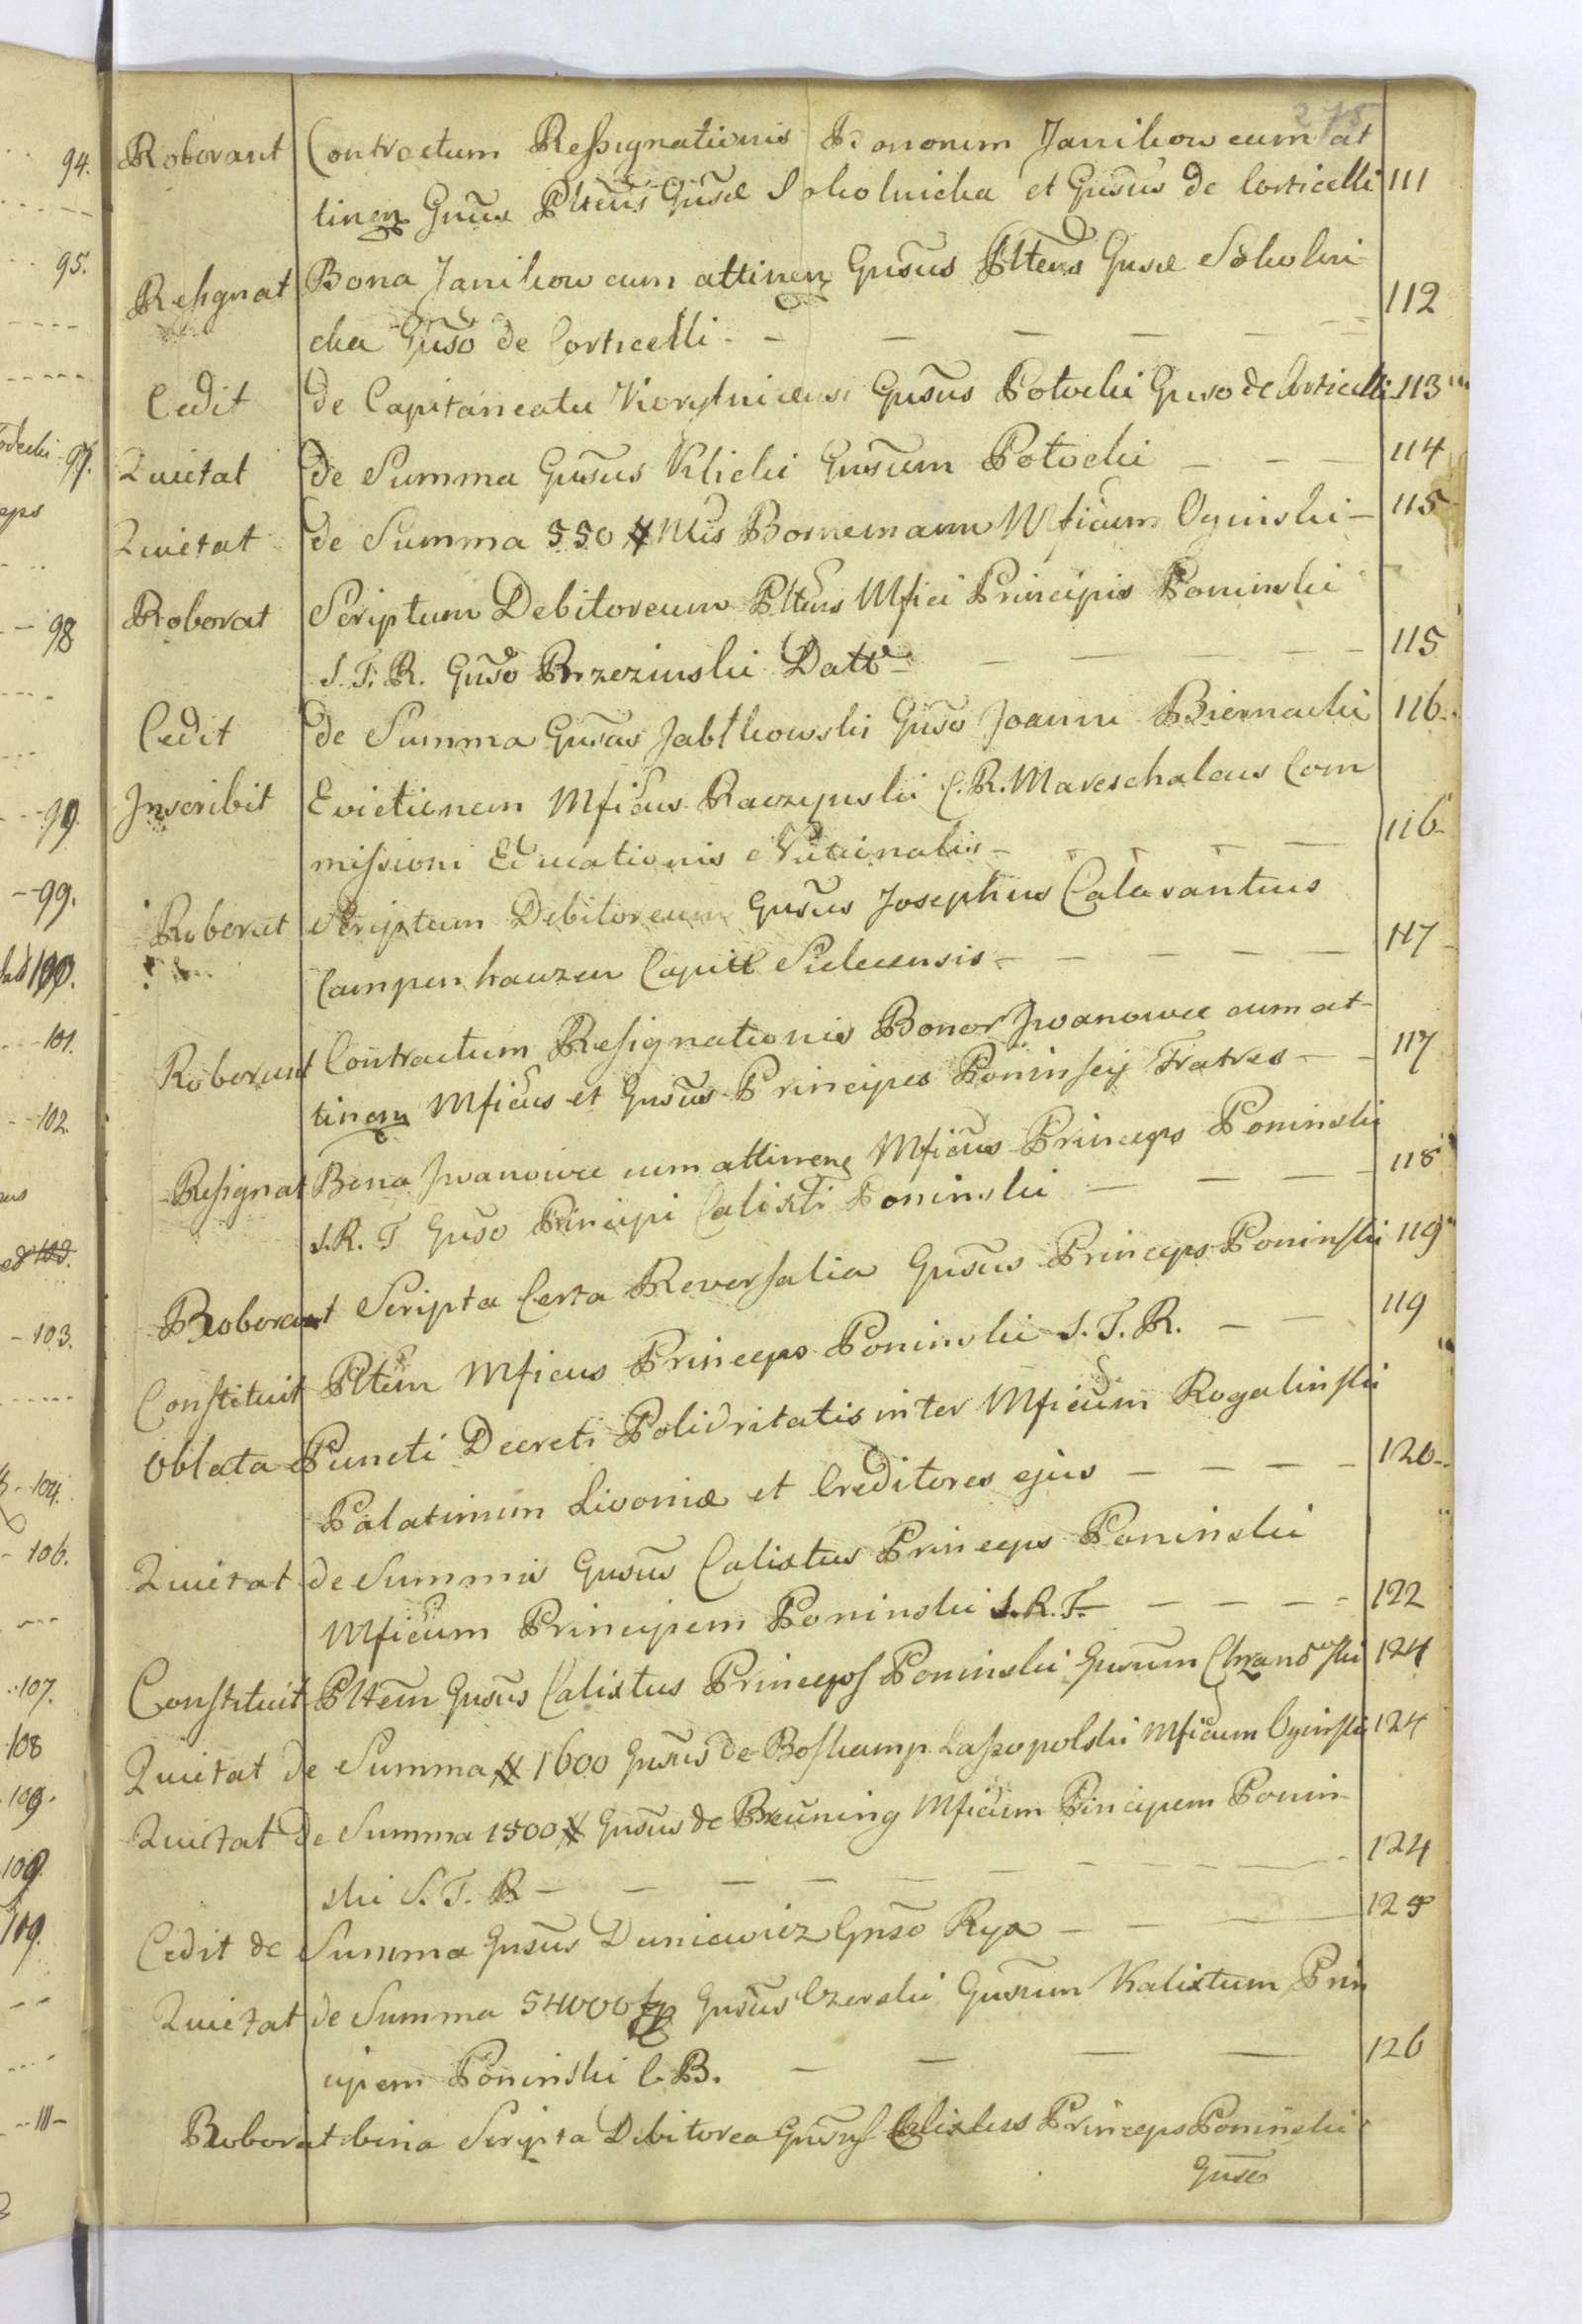 275
94. Roborant Contractum Ressignationis Bonorum Janikow cum at
tinen Gnsus Pltens Gnsae Sokolnicka et Gnsus de Corticelli 111
95.
Resignat Bona Janikow cum attinen Gnsus Pltens Gnsae Sokolni
cka Gnso de Corticelli - - - - 112
Cedit de Capitaneatu Gnsus Potocki Gnso de Corticelli 113
97. Quietat de Summa Gnsus Klicki Gnsum Potocki - - - 114
Quietat de Summa 550 # Nlis Bornemann Mficum Oginski - 115
98 Roborat Scriptum Debitoreum Pltens Mfici Principis Poninski
S. T. R. Gnso Brzezinski Datt - - - - 115
Cedit de Summa Gnsus Jabłkowski Gnso Joanni Biernacki 116
99. Inscribit Evictionem Mficus Raczynski C. R. Mareschalcus Com
missioni Educationis Nationalis - - - - 116
99. Roborat Scriptum Debitoreum Gnsus Josephus Calasantius
100. Campenhauzen Capitt - - - - 117
101. Roborant Contractum Resignationis Bonor Iwanowce cum at-
tinen Mficus et Gnsus Principes Poninscij Fratres - - 117
102.
Ressignat Bona Iwanowce cum attinen Mficus Princeps Poninski
S. R. T Gnso Principi Calixti Poninski - - - - 118
Roborant Scripta Certa Reversalia Gnsus Princeps Poninski 119
103.
Constituit Pltem Mficus Princeps Poninski S. T. R. - - 119
Oblata Puncti Decreti Polioritatis inter Mficum Rogalinski
104. Palatinum Livoniæ et Creditores ejus - - - - 120
106. Quietat de Summis Gnsus Calixtus Princeps Poninski
Mficum Principem Poninski S. R. T. - - - - 122
107. Constituit Pltem Gnsus Calixtus Princeps Poninski Gnsum 124
108 Quietat de Summa # 1600 Gnsus de Boskamp Lasopolski Mficum Oginski 124
109. Quietat de Summa 1500 # Gnsus de Breuning Mficum Principem Ponin
109. ski S. T. R - - - - - 124
109. Cedit de Summa Gnsus Duniewicz Gnso Ryx - - 125
Quietat de Summa 54000 Gnsus Ozerski Gnsum Kalixtum Prin
cipem Poninski C. B. - - - - 126
111 Roborat bina Scripta Debitorea Gnsus Calixtus Princeps Poninski
Gnso